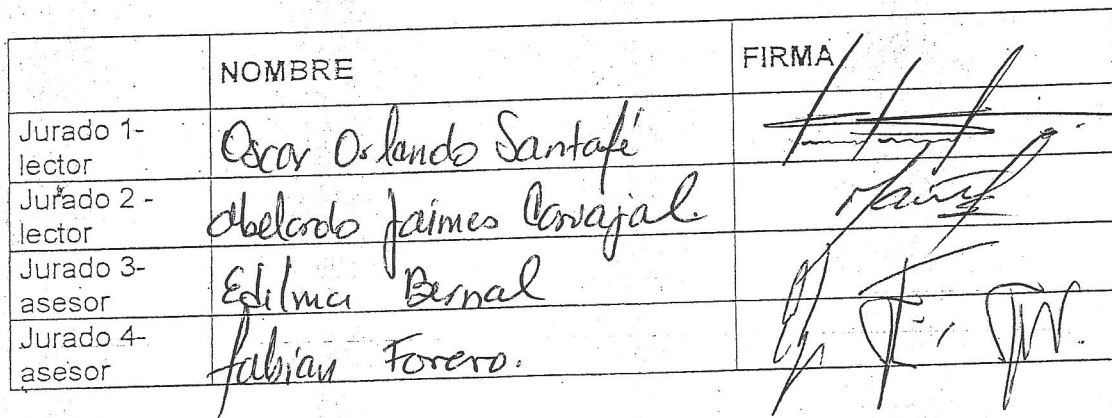 NOMBRE FIRMA
Jurado 1-
lector
Oscar Orlando Santafé
Jurado 2 -
lector
Abelardo Jaimes Carvajal.
Jurado 3-
asesor
Edilma Bernal
Jurado 4-
asesor
Fabian Forero.